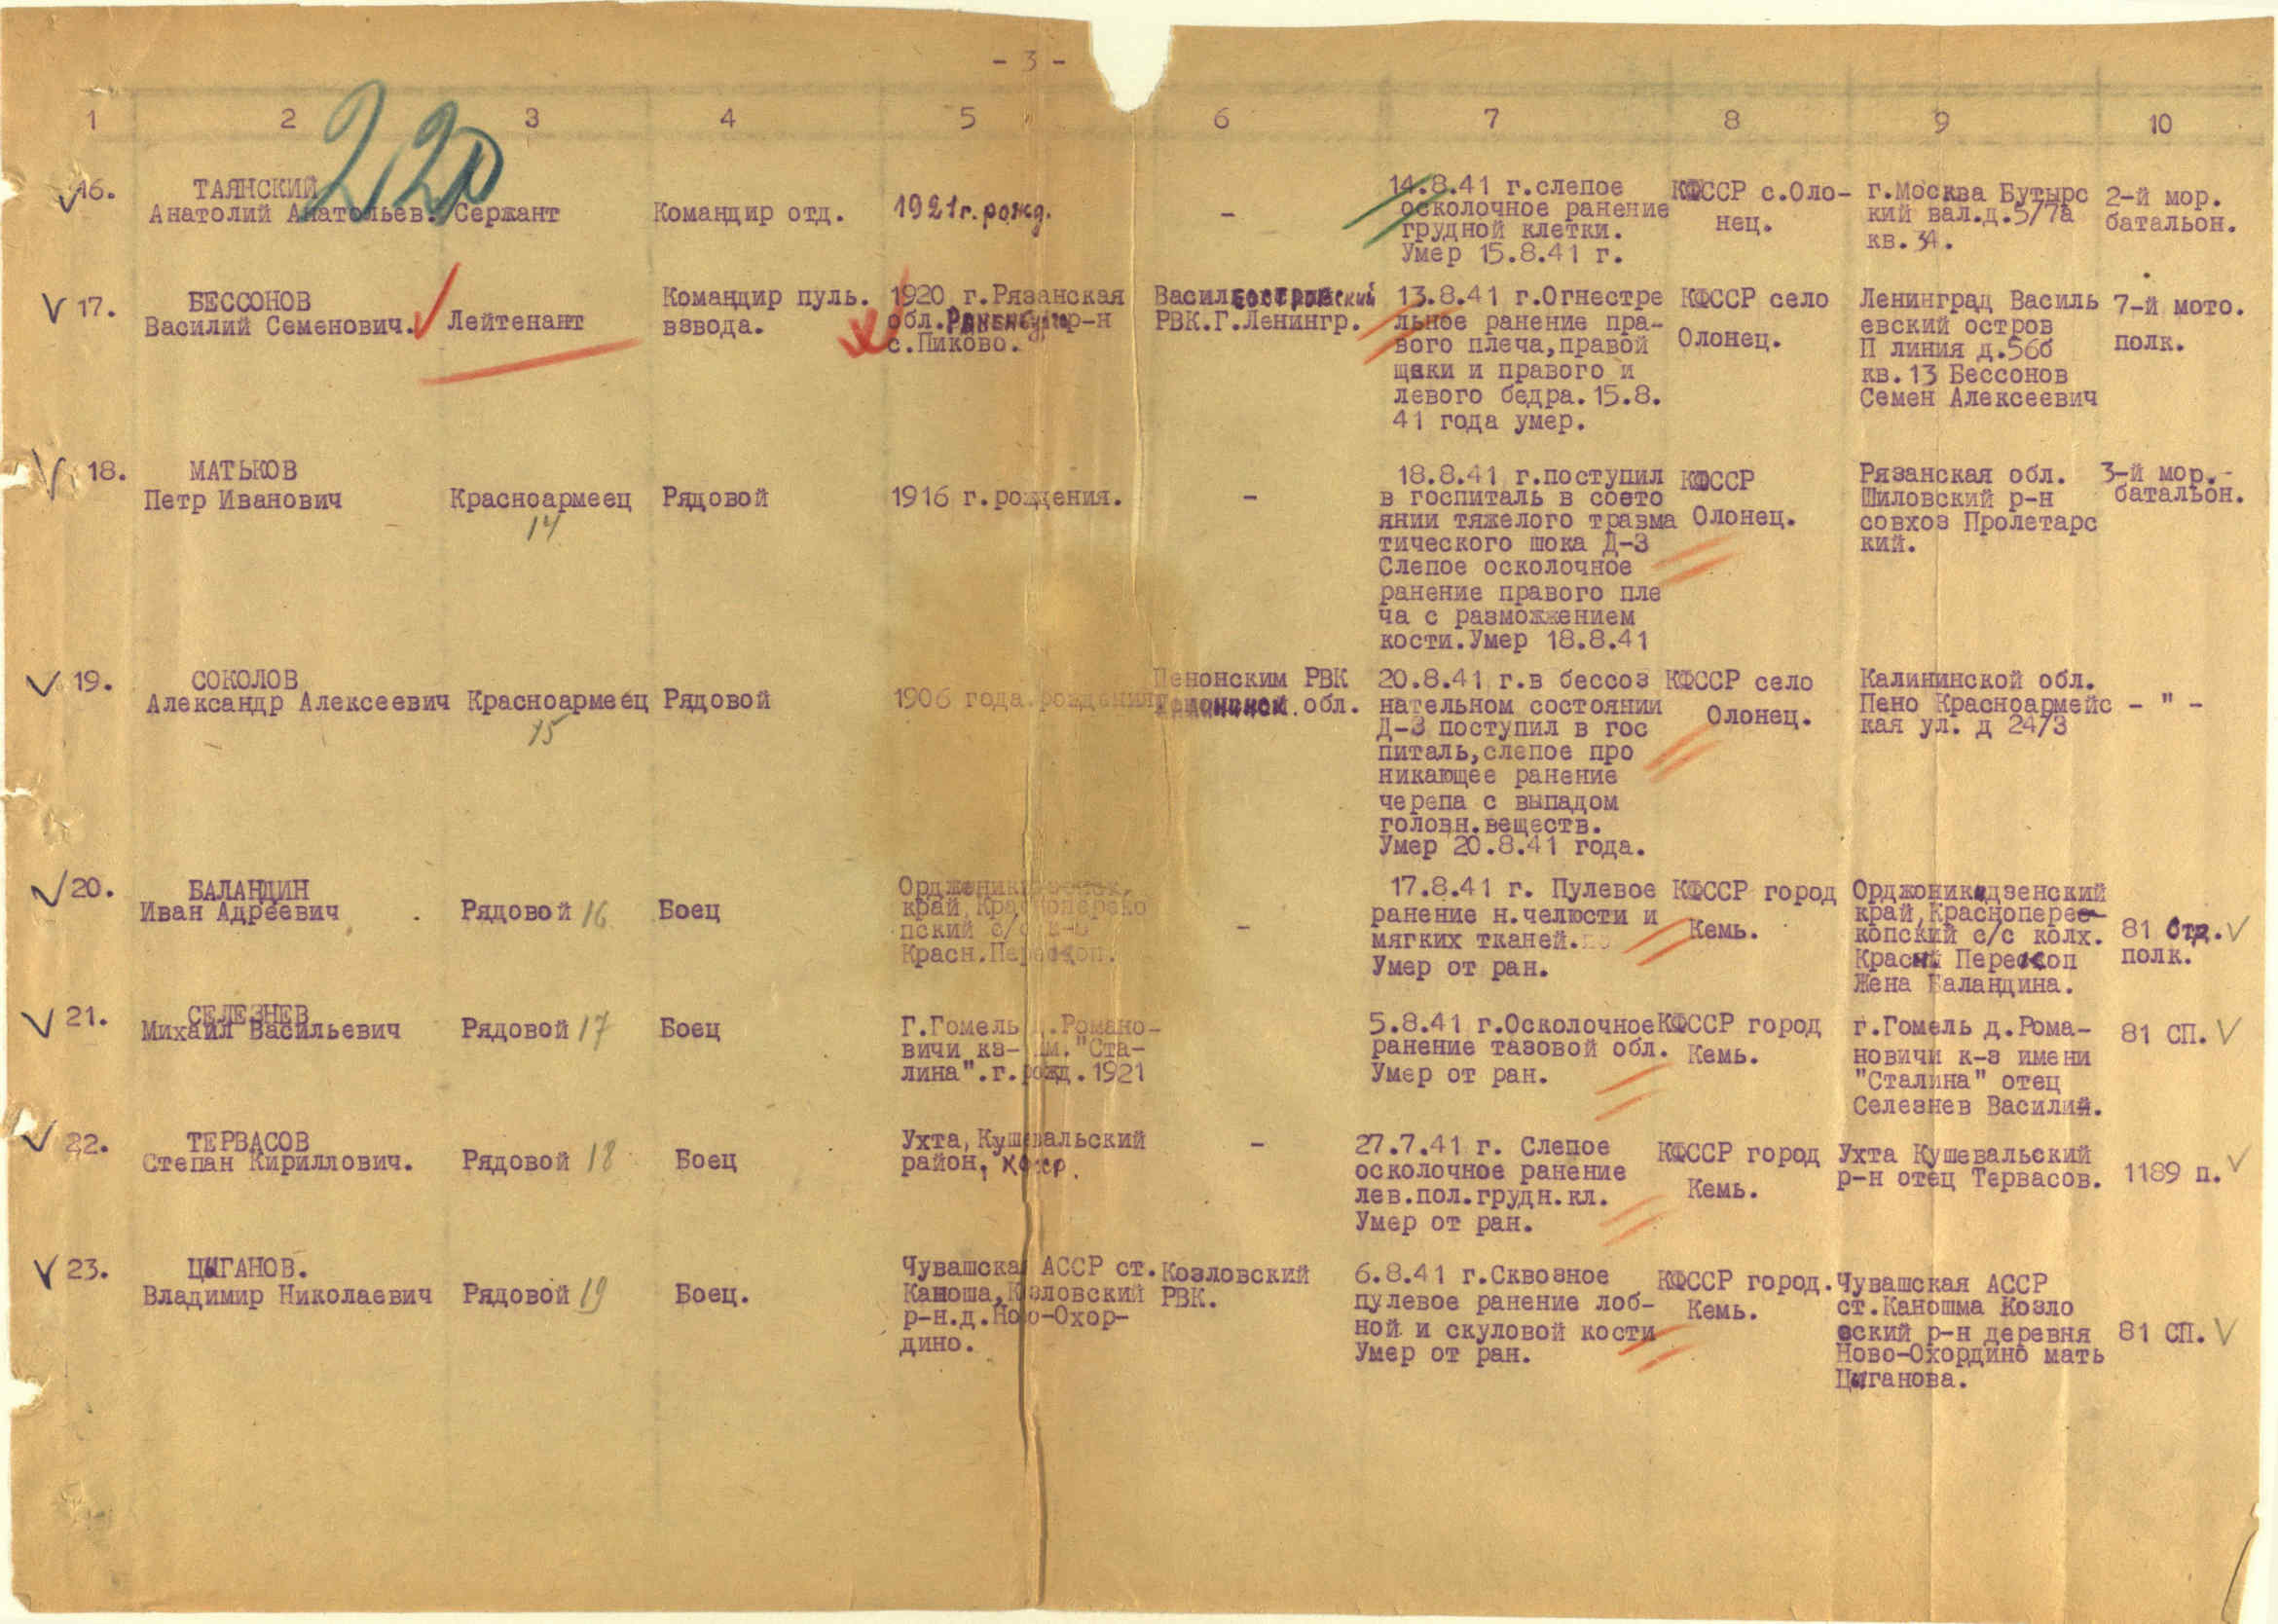 - 3 -
1 2 3 4 5 6 7 8 9 10
220
16.
ТАЯНСКИЙ
Анатолий Анатольев.
Сержант
Командир отд.
1921 г. рожд.
-
14.8.41 г.слепое
осколочное ранение
грудной клетки.
Умер 15.8.41 г.
КФССР с.Оло-
нец.
г.Москва Бутырс
кий вал.д.5/7а
кв.34.
2-й мор.
батальон.
17.
БЕССОНОВ
Василий Семенович.
Лейтенант
Командир пуль.
взвода.
1920 г.Рязанская
обл. р-н
с.Пиково.
Василеостровский
РВК.Г.Ленингр.
13.8.41 г.Огнестре
льное ранение пра-
вого плеча,правой
щеки и правого и
левого бедра.15.8.
41 года умер.
КФССР село
Олонец.
Ленинград Василь
евский остров
П линия д.56б
кв.13 Бессонов
Семен Алексеевич
7-й мото.
полк.
18.
МАТЬКОВ
Петр Иванович
Красноармеец
14
Рядовой
1916 г.рождения.
-
18.8.41 г.поступил
в госпиталь в состо
янии тяжелого травма
тического шока Д-3
Слепое осколочное
ранение правого пле
ча с размозжением
кости.Умер 18.8.41
КФССР
Олонец.
Рязанская обл.
Шиловский р-н
совхоз Пролетарс
кий.
3-й мор.-
батальон.
19.
СОКОЛОВ
Александр Алексеевич
Красноармеец
15
Рядовой
1906 года рождения
Пенонским РВК
обл.
20.8.41 г.в бессоз
нательном состоянии
Д-3 поступил в гос
питаль,слепое про
никающее ранение
черепа с выпадом
головн.веществ.
Умер 20.8.41 года.
КФССР село
Олонец.
Калининской обл.
Пено Красноармейс
кая ул. д 24/3
- " -
20.
БАЛАНДИН
Иван Адреевич
Рядовой 16
Боец
край,Краснопереко
пский с/с
Красн.Перекоп.
-
17.8.41 г. Пулевое
ранение н.челюсти и
мягких тканей.
Умер от ран.
КФССР город
Кемь.
Орджоникидзенский
край,Красноперее-
копский с/с колх.
Красн Перекоп
Жена Баландина.
81 Стр.
полк.
21.
СЕЛЕЗНЕВ
Михаил Васильевич
Рядовой 17
Боец
Г.Гомель д.Романо-
вичи кз- им."Ста-
лина".г.рожд.1921
5.8.41 г.Осколочное
ранение тазовой обл.
Умер от ран.
КФССР город
Кемь.
г.Гомель д.Рома-
новичи к-з имени
"Сталина" отец
Селезнев Василий.
81 СП.
22.
ТЕРВАСОВ
Степан Кириллович.
Рядовой 18
Боец
Ухта,Кушевальский
район,
-
27.7.41 г. Слепое
осколочное ранение
лев.пол.грудн.кл.
Умер от ран.
КФССР город
Кемь.
Ухта Кушевальский
р-н отец Тервасов.
1189 п.
23.
ЦЫГАНОВ.
Владимир Николаевич
Рядовой 19
Боец.
Чувашская АССР ст.
Каноша,Козловский
р-н.д.Ново-Охор-
дино.
Козловский
РВК.
6.8.41 г.Сквозное
пулевое ранение лоб-
ной и скуловой кости
Умер от ран.
КФССР город.
Кемь.
Чувашская АССР
ст.Каношма Козло
вский р-н деревня
Ново-Охордино мать
Цыганова.
81 СП.